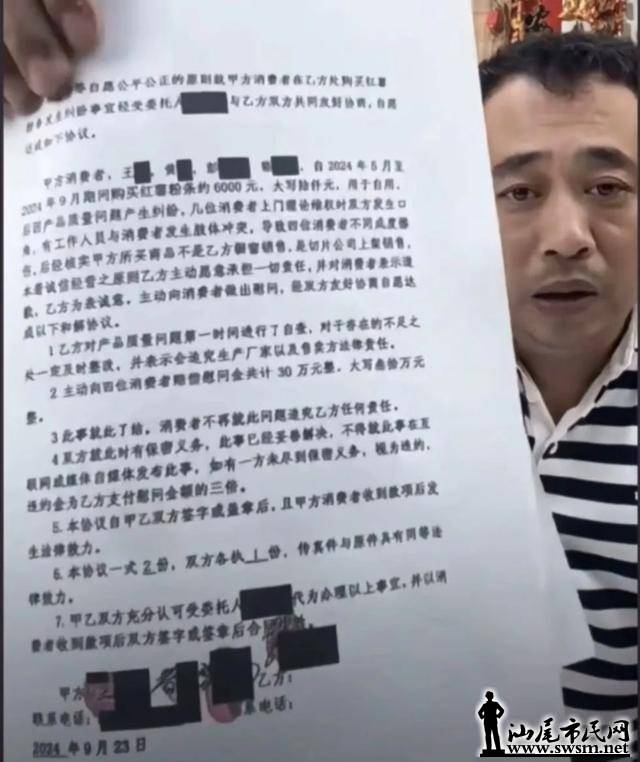 等自愿公平公正的原则就甲方消费者在乙方处购买红薯
粉条发生纠纷事宜经受委托人 与乙方双方共同友好协商，自愿
达成如下协议。
甲方消费者，王 黄 彭 ，自2024年5月至
2024年9月期间购买红薯粉条约6000元，大写陆仟元，用于自用，
后因产品质量问题产生纠纷，几位消费者上门理论维权时双方发生口
角，有工作人员与消费者发生肢体冲突，导致四位消费者不同成度损
伤，后经核实甲方所买商品不是乙方橱窗销售，是切片公司上架销售，
本着诚信经营之原则乙方主动愿意承担一切责任，并对消费者表示道
歉，乙方为表诚意，主动向消费者做出慰问，经双方友好协商自愿达
成以下和解协议。
1乙方对产品质量问题第一时间进行了自查，对于存在的不足之
处一定及时整改，并表示会追究生产厂家以及售卖方法律责任。
2主动向四位消费者赔偿慰问金共计30万元整，大写叁拾万元
整。
3此事就此了结，消费者不再就此问题追究乙方任何责任。
4双方就此时有保密义务，此事已经妥善解决，不得就此事在互
联网或媒体自媒体发布此事，如有一方未尽到保密义务，视为违约，
违约金为乙方支付慰问金额的三倍。
5.本协议自甲乙双方签字或盖章后，且甲方消费者收到款项后发
生法律效力。
6.本协议一式2份，双方各执1份，传真件与原件具有同等法
律效力。
7.甲乙双方充分认可受委托人 代为办理以上事宜，并以消
费者收到款项后双方签字或签章后合同
甲方 乙方：
联系电话： 系电话：
2024年9月23日
汕尾市民网
www.swsm.net